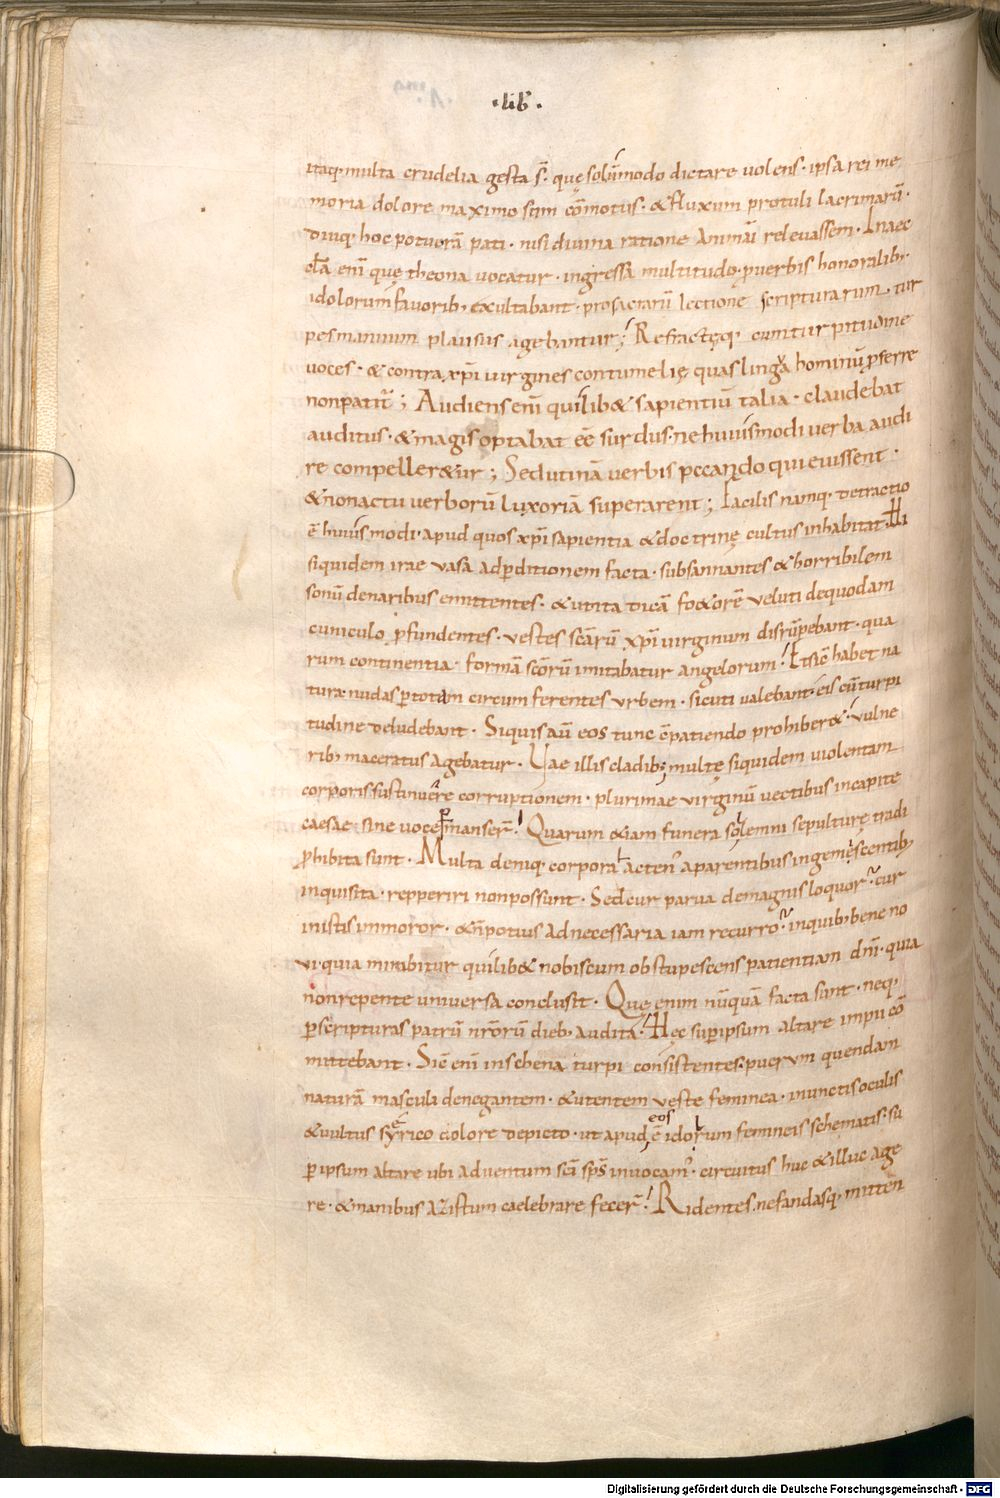 ·lib·
itaq; multa crudelia gesta s̄· quę solūmodo dictare uolens· ipsa rei me
moria dolore maximo sum cōmotus· & fluxum protuli lacrimarū·
Diuq; hoc potuerā pati· nisi diuina ratione animā releuassem· In aec
cl̄a enī quę theona uocatur· ingressa multitudo· ꝓ uerbis honoralib;
idolorum fauorib; exultabant· pro sacrarū lectione scripturarum· tur
pes manuum plausus agebantur; Refractęq; cum turpitudine
uoces· & contra xp̄i uirgines contumelię quas lingua hominū ꝓferre
non patit̄; Audiens enī quilib& sapientiū talia· claudebat
auditus· & magis optabat eē surdus· ne huiusmodi uerba audi
re compeller&ur; Sed utinā uerbis peccando quieuissent·
& non actu uerborū luxoriā superarent; Facilis namq; detractio
ē huiusmodi· apud quos xp̄i sapientia & doctrinę cultus inhabitat· Hi
siquidem irae uasa ad ꝑditionem facta· subsannantes & horribilem
sonū de naribus emittentes· & ut ita dicā foetorē ueluti de quodam
cuniculo ꝓfundentes· uestes scārū xp̄i uirginum disrūpebant· qua
rum continentia· formā scōrū imitabatur angelorum! Et sic habet na
tura nudas ꝑ totam circumferentes urbem· sicuti ualebant· eis cū turpi
tudine deludebant· Siquis aū eos tunc cōpatiendo prohiber&· uulne
rib; maceratus agebatur· Vae illis cladib; multę siquidem uiolentam
corporis sustinuēre corruptionem· plurimae uirginū uectibus in capite
caesae sine uoce ꝑmanser̄! Quarum &iam funera solemni sepulturę tradi
ꝓhibita sunt· Multa deniq; corpora actenꝰ a parentibus ingemescentib;
inquisita· repperiri non possunt· Sed cur parua de magnis loquor· cur
in istis inmoror· & n̄ potius ad necessaria iam recurro· in quib; bene no
ui quia mirabitur quilib& nobiscum obstupescens patientiam dnī· quia
non repente uniuersa conclusit· Quę enim nūquā facta sunt· neq;
ꝑ scripturas patrū nrōrū dieb; audita· Hęc sup ipsum altare impii cō
mittebant· Sic enī in schena turpi consistentes· puerum quendam
naturā mascula denegantem· & utentem ueste feminea· inunctis oculis
& uultus syrico colore depicto· ut apud eos ē idolum femineis schematis· su
ꝑ ipsum altare ubi aduentum scī sps̄ inuocamꝰ· circuitus huc & illuc age
re· & manibus aristum caelebrare fecer̄! Ridentes· nefandasq; mitten
Digitalisierung gefördert durch die Deutsche Forschungsgemeinschaft - DFG